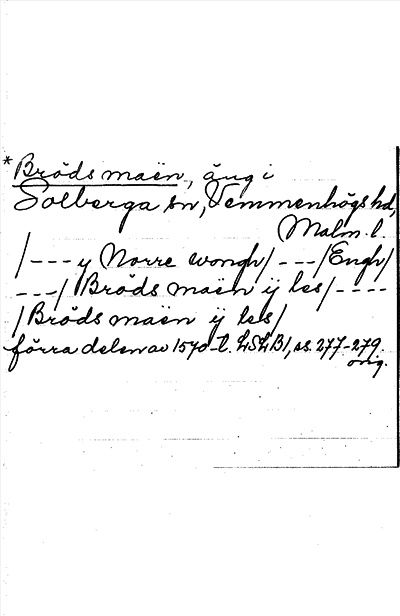 *Bröds maën, äng i
Solberga sn, Vemmenhögs hd,
Malm. l.
/--- y Norre wongh/ ---/Engh/
---/ Bröds maën ij les/ ----
/Bröds maën ij les/
förra delen av 1570-t. LSLB1, ss. 277-279.
orig.